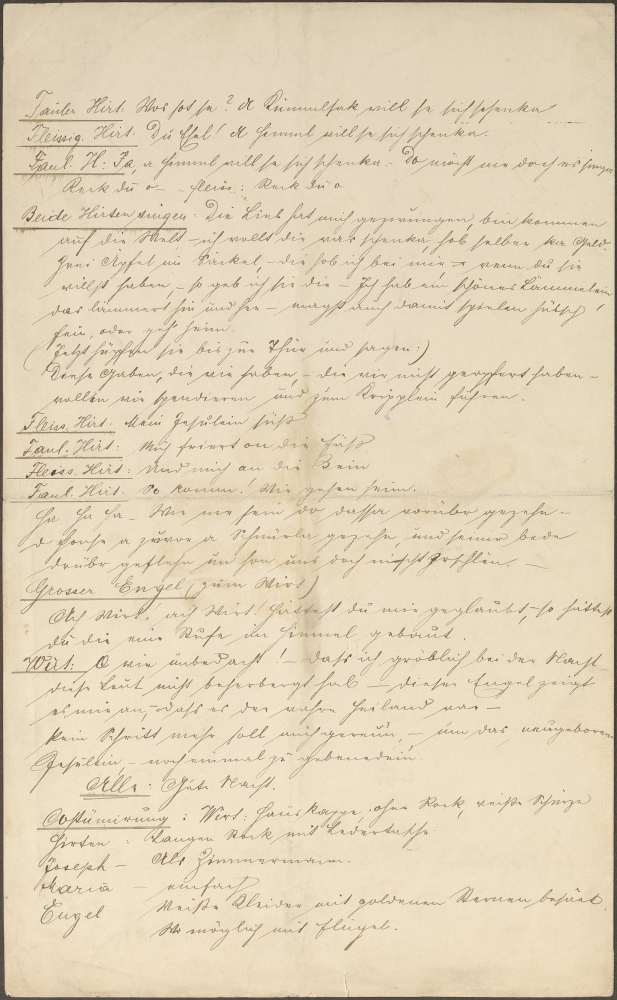 Fauler Hirt. Wos sot se? A Kümmelsak will se sich schenka
Fleissig. Hirt. Du Esel! A Himmel will se sich schenka.
Faul. H: Ja, a Himmel will se sich schenka. Do mecht me doch es singa
Reck du o – fleiss: Reck du o
Beide Hirten singen. Die Lieb hat mich gezwungen, bin kommen
auf die Welt – ich wollt dir was schenka, hob selber ka Geld.
Zwei Äpfel im Säckel, – die hob ich bei mir – wenn du sie
willst haben, – so geb ich sie dir – Ich hab ein schönes Lämmelein,
das lämmert hin und her – magst auch damit spielen hübsch
fein, oder geh heim.
(Jetzt hüpfen sie bis zur Thür und sagen:)
Diese Gaben, die wir haben, – die wir nicht geopfert haben –
wollen wir spendieren und zum Kripplein führen.
Fleiss. Hirt. Mein Jesulein süß
Faul. Hirt: Mich friert on die Füß
Fleiss. Hirt: Und mich an die Bein
Faul. Hirt. So komm! Wir gehen heim.
Ha Ha Ha – Wie me sein do vorüber
a a gezehn, und seiner bede
drüber und uns doch nischt
Grosser Engel (zum Wirt)
Ach Wirt! ach Wirt! hättest du mir geglaubt, – so hättest
du dir eine Stufe im Himmel gebaut.
Wirt: O wie unbedacht! – dass ich gröblich bei der Nacht
diese Leut nicht beherbergt hab – dieser Engel zeigt
es mir an, – dass es der wahre Heiland war –
Kein Schritt mehr soll mich gereun, – um das neugeborne
Jesulein, – noch einmal zu gebenedein.
Alle: Gute Nacht.
Costümirung: Wirt: Hauskappe, ohne Rock, weiße Schürze
Hirten: Langen Rock mit Ledertasche
Joseph – Als Zimmermann.
Maria – einfach
Engel Weiße Kleider mit goldenen Sternen besäet.
Wo möglich mit Flügel.